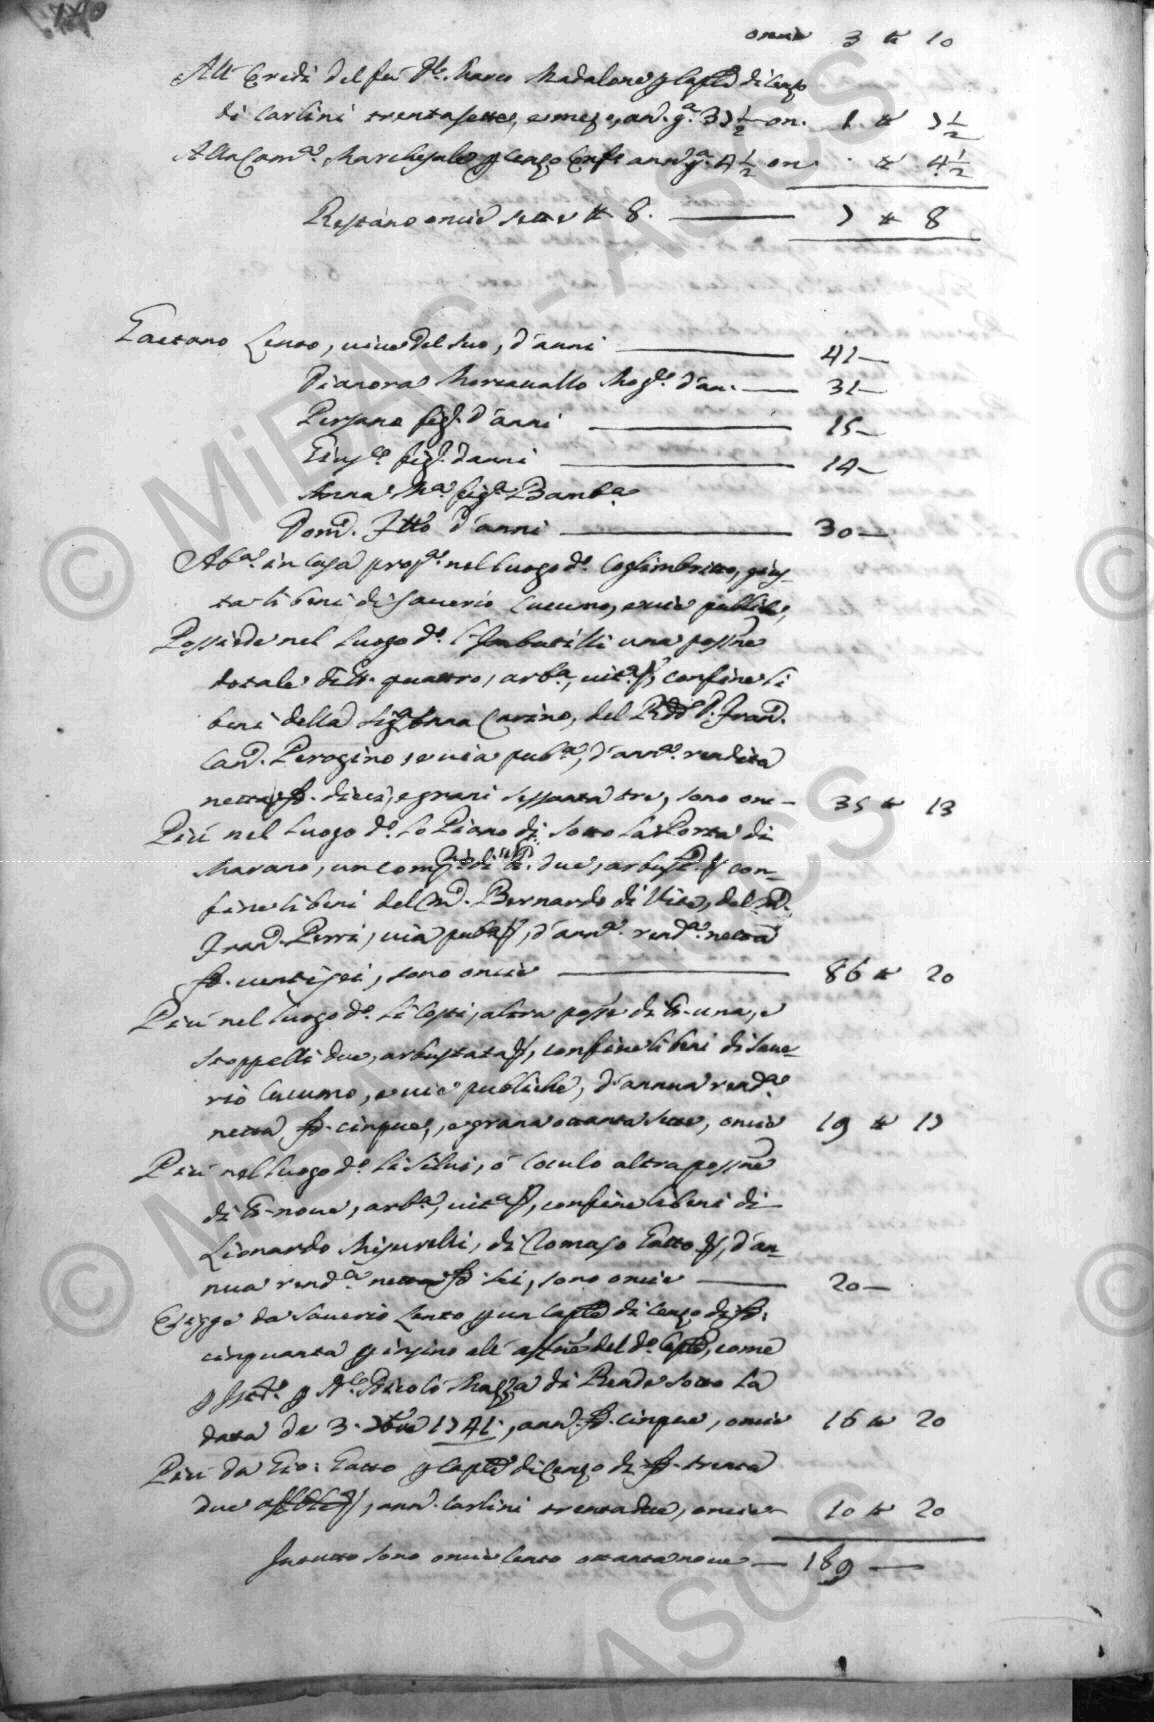 oncie 3 tt 10
Alli Eredi del fù Marco Madalone p Cap.le di Cenzo
di Carlini trentasette, e mezo, an. 37 1/2 on. 1 tt 7 1/2
Alla Cam.a Marchesale p Cenzo ann. 4 1/2 on. tt 4 1/2
Restano oncie sette tt 8. 7 tt 8
Gaetano Lento, vive del suo, d'anni 41
Dianora Morcavallo Mog.e d'an. 31
Persana figl. d'anni 15
Gius.e figl. d'anni 14
Anna M.a fig.a Bamb.a
Dom. d'anni 30
Ab.a in Casa prop.a nel luogo d.o Coglimbritto, gius-
ta li beni di Saverio Cucumo, e vie publiche,
Possiede nel luogo d.o una poss.ne
dotale di tt. quattro, arb.a, vit.a, confine li
beni della Carino, del R.do D. Fran.
Can. Perogino, e via pub.a, d'ann.a rendita
netta d. dieci, e grani sessanta tre, sono onc- 35 tt 13
Più nel luogo d.o Lo Piano di sotto La Porta di
Marano, un di tt. due, con-
fine li beni del Bernardo di Vico, del
Fran. Perri, via pub.a, d'ann.a rend.a netta
d. venti sei, sono oncie 86 tt 20
Più nel luogo d.o altra posse di tt. una, e
stoppelli due, arbustata, confine li beni di Save-
rio Cucumo, e vie publiche, d'annua rend.a
netta d. cinque, e grana ottanta sette, oncie 19 tt 17
Più nel luogo d.o Li Silvi, ò Coculo altra poss.ne
di tt. nove, arb.a, vit.a, confine li beni di
Lionardo Misurelli, di Tomaso Gatto, d'an-
nua rend.a netta d. sei, sono oncie 20
Esigge da Saverio Lento p un Cap.le di Cenzo di d.
cinquanta p insino all' del d.o Cap.le, come
p p N.r Nicolò Mazza di Rende sotto La
data de 3. 1741, ann. d. cinque, oncie 16 tt 20
Più da Gio: Gatto p Cap.le di Cenzo di d. trenta
due, ann. Carlini trentadue, oncie 10 tt 20
In tutto sono oncie Cento ottanta nove 189
© MiBAC - ASCS
© MiBAC - ASCS
ASCS
©
©